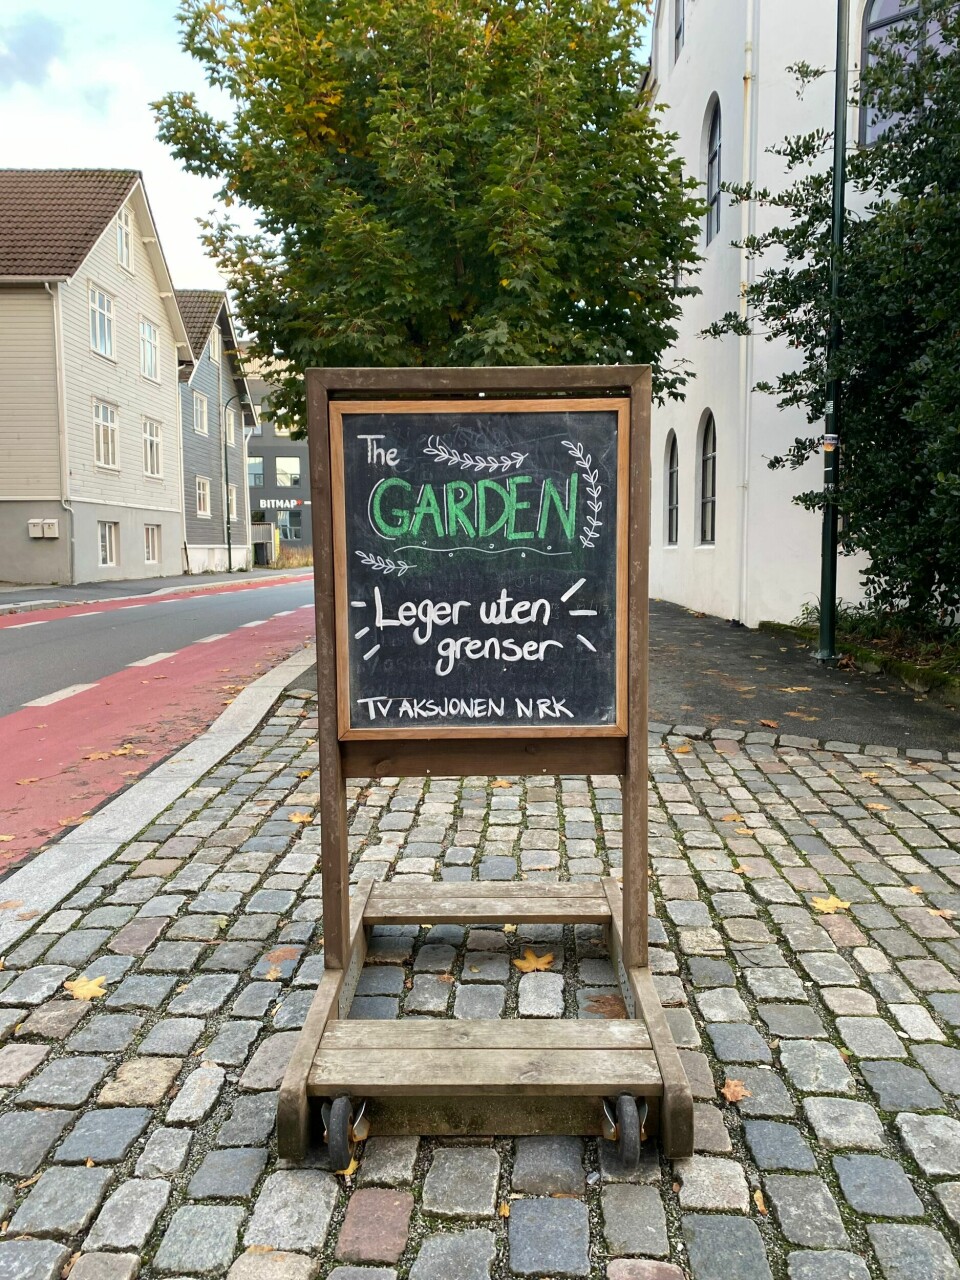 The
GARDEN
Leger uten
grenser
TV AKSJONEN NRK
BITMAP